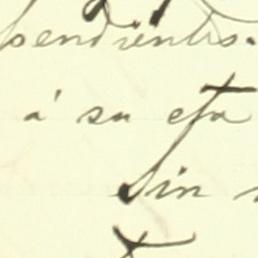 pendientes.
á su efa
Sin